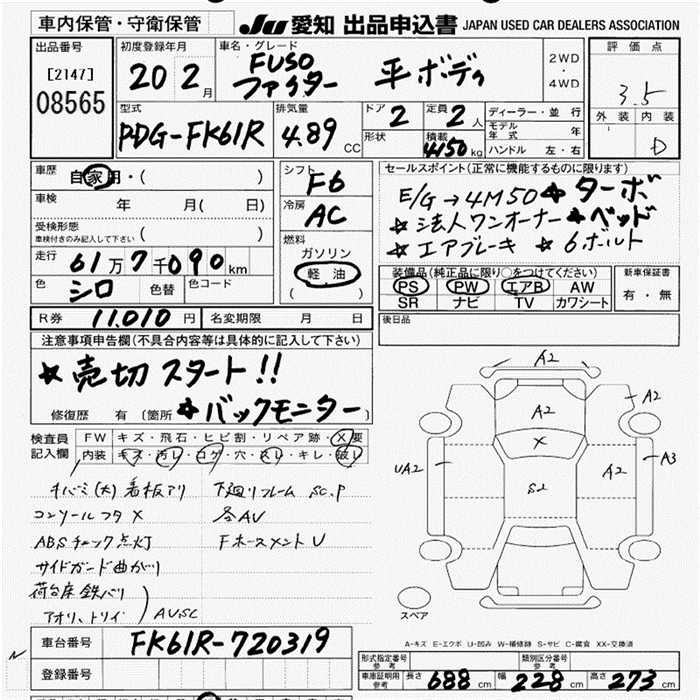 車内保管・守衛保管
JU 愛知 出品申込書 JAPAN USED CAR DEALERS ASSOCIATION
出品番号
[2147]
08565
初度登録年月
20 2月
車名・グレード
FUSO
ファイター 平ボディ
2WD
・
4WD
評価点
3.5
外装 内装
D
型式
PDG-FK61R
排気量
4.89 CC
ドア
2
形状
定員
2人
積載
4150 kg
ディーラー・並行
モデル年式 年
ハンドル 左・右
車歴
自家用・( )
車検 年 月( 日)
受検形態
車検付きのみ記入して下さい ( )
走行
61万7千090km
色
シロ
色替
色コード
シフト
F6
冷房
AC
燃料
ガソリン
軽油
( )
セールスポイント(正常に機能するものに限ります)
E/G→4M50 ★ターボ
★法人ワンオーナー★ベッド
★エアブレーキ ★6ボルト
装備品(純正品に限り○をつけてください)
PS PW エアB AW
SR ナビ TV カワシート
新車保証書
有・無
R券 11,010円 名変期限 月 日
後日品
注意事項申告欄(不具合内容等は具体的に記入して下さい)
★売切スタート!!
修復歴 有 (箇所 ★バックモニター)
検査員
記入欄
FW キズ・飛石・ヒビ割・リペア跡・X要
内装 キズ・汚レ・コゲ・穴・スレ・キレ・破レ
キバミ(大)看板アリ 下廻リフレーム SC.P
コンソールフタ X 各AV
ABSチェック点灯 FホースメントU
サイドガード曲がり
荷台床鉄バリ
アオリ、トリイ ) AVSC
A2
A2
A2
X
UA2
S2
A2
A3
スペア
A-キズ E-エクボ U-凹み W-補修跡 S-サビ C-腐食 XX-交換済
車台番号 FK61R-720319
登録番号
形式指定番号
参考
類別区分番号
参考
車庫証明用
参考
長さ 688 cm 幅 228 cm 高さ 273 cm